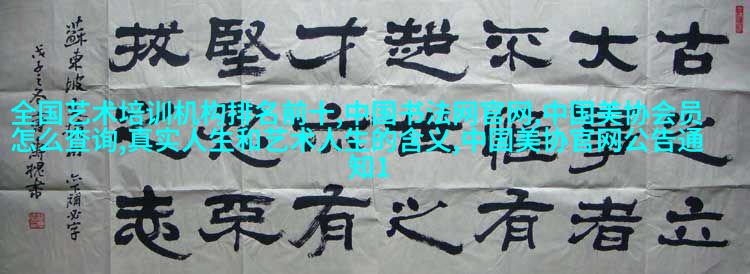 古之立
大事者
不惟有
超世之
才亦有
堅忍不
拔之志
蘇東坡
下漏必字
戊子之冬
全国艺术培训机构排名前十,中国书法网官网,中国美协会员
怎么查询,真实人生和艺术人生的含义,中国美协官网公告通
知1